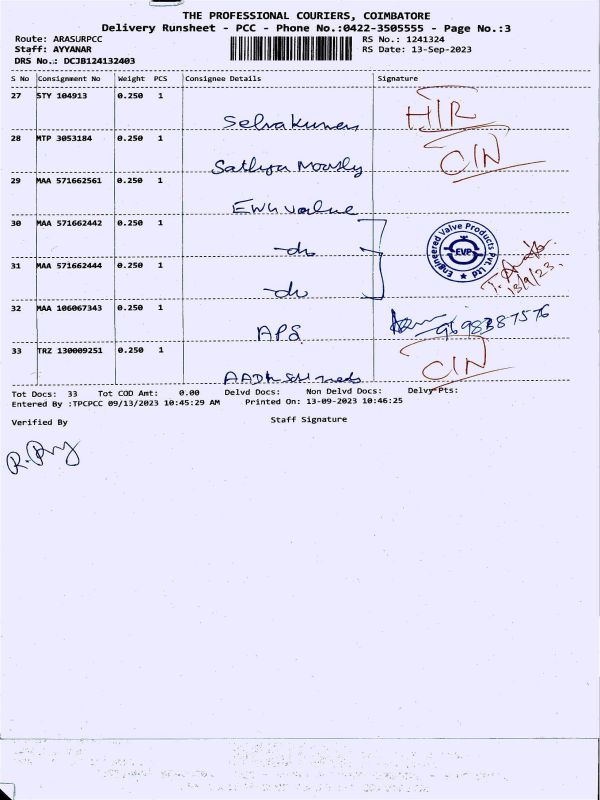 THE PROFESSIONAL COURIERS, COIMBATORE
Delivery Runsheet - PCC - Phone No.:0422-3505555 - Page No.:3
Route: ARASURPCC RS No.: 1241324
Staff: AYYANAR RS Date: 13-Sep-2023
DRS No.: DCJB124132403
S No Consignment No Weight PCS Consignee Details Signature
27 STY 104913 0.250 1
Selvakumar H/R
28 MTP 3053184 0.250 1
Sathya C/N
29 MAA 571662561 0.250 1
EWG value
30 MAA 571662442 0.250 1
-do
Engineered Valve Products Pvt. Ltd
EVP
31 MAA 571662444 0.250 1
-do 13/9/23.
32 MAA 106067343 0.250 1
APS
33 TRZ 130009251 0.250 1
C/N
Tot Docs: 33 Tot COD Amt: 0.00 Delvd Docs: Non Delvd Docs: Delvy Pts:
Entered By :TPCPCC 09/13/2023 10:45:29 AM Printed On: 13-09-2023 10:46:25
Verified By Staff Signature